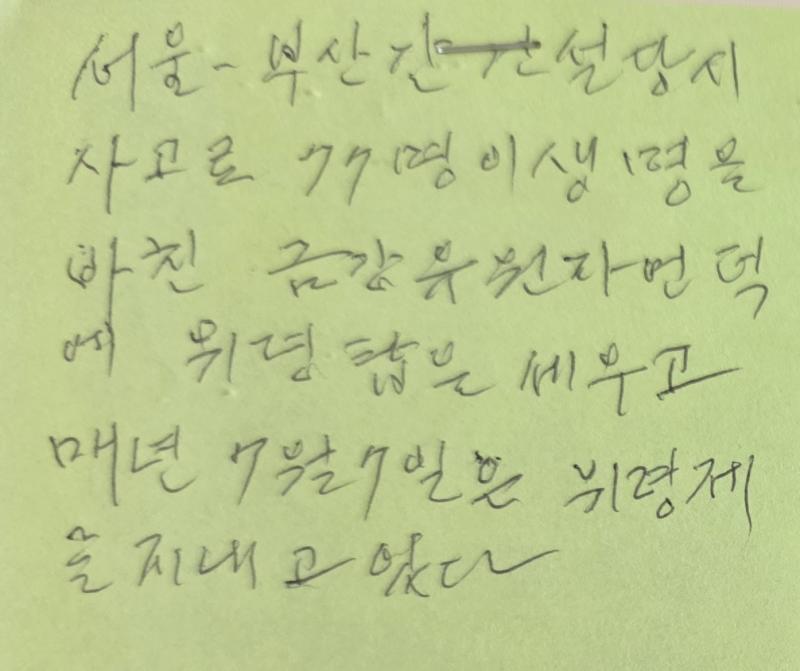 서울-부산간 건설당시
사고로 77명이생명을
바친 금강유원지언덕
에 위령탑을 세우고
매년 7월7일은 위령제
을지내고있다